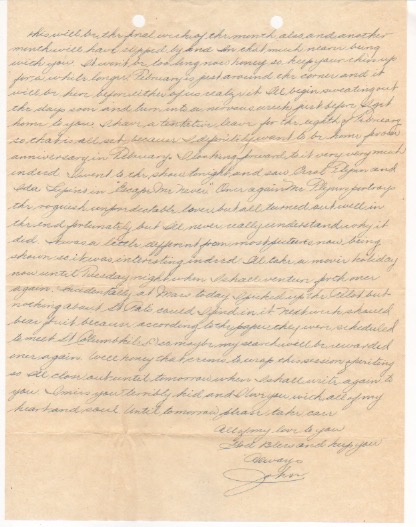 this will be the final week of the month alas and another
month will have slipped by and I'm that much nearer being
with you. It won't be too long now honey so keep your chin up
for a while longer. February is just around the corner and it
will be here before either of us really it. I'll begin sweating out
the days soon and turn into a nervous wreck just before I get
home to you. I have a tentative leave for the eighth of February
so that is all set because I definitely want to be home for our
anniversary in February. I looking forward to it very very much
indeed. I went to the show tonight and saw Errol Flynn and
Ida Lupino in Escape Me Never. Once again Mr. Flynn portrays
the roguish unpredictable lover but all turned out well in
the end fortunately but I'll never really understand why it
did. It was a little different from most pictures now being
shown so it was interesting indeed. I'll take a movie holiday
now until Tuesday night when I shall venture forth once
again. Incidentally at Mass today I picked up the Pilot but
nothing about St. Pats could I find in it. Next week should
bear fruit because according to the paper they were scheduled
to meet St. Columbkille so maybe my search will be rewarded
once again. Well honey the time to wrap this session of writing
so I'll close out until tomorrow when I shall write again to
you. I miss you terribly kid and I love you with all of my
heart and soul. Until tomorrow please take care
All of my love to you
God Bless and keep you
Always
John